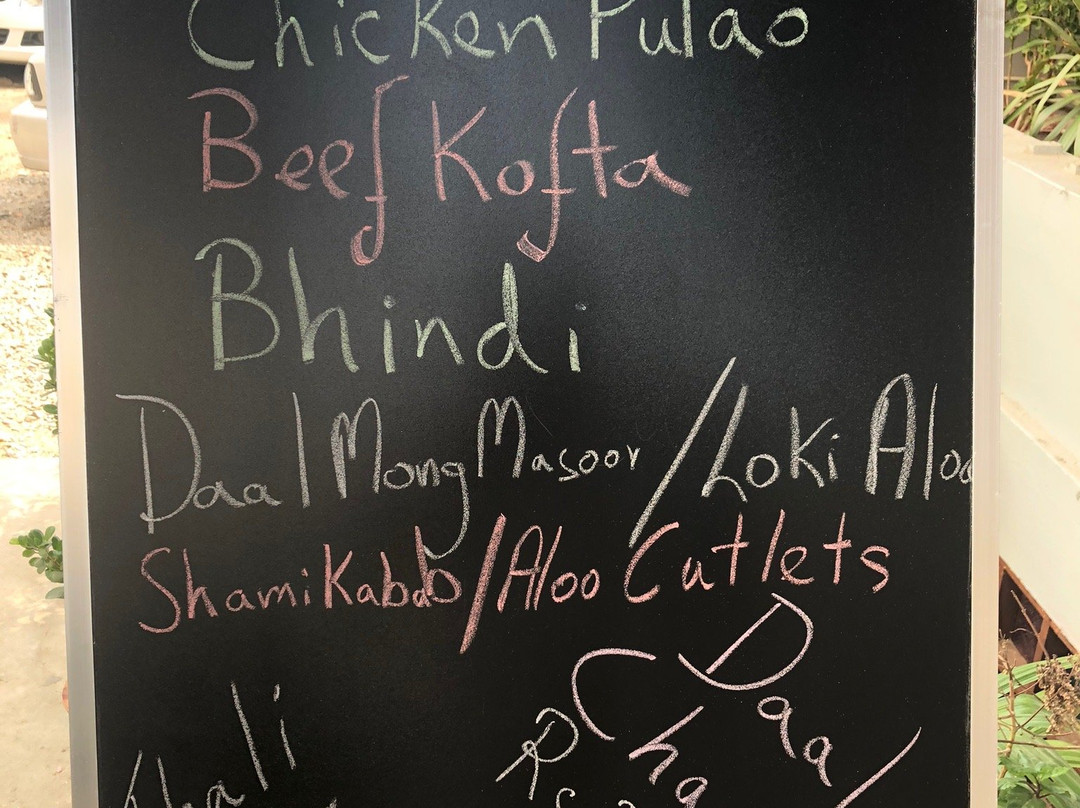 Chicken Pulao
Beef Kofta
Bhindi
Daal Mong Masoor / Loki Aloo
Shami Kabab / Aloo Cutlets
Daal /
Cha